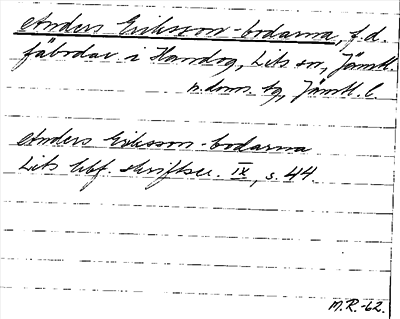 Anders Eriksson-bodarna, f.d.
fäbodar i Handog, Lits sn, Jämtl.
n. doms. tg, Jämtl. l.
Anders Eriksson-bodarna
Lits hbf. skriftser. IX, s. 44.
M.R.-62.